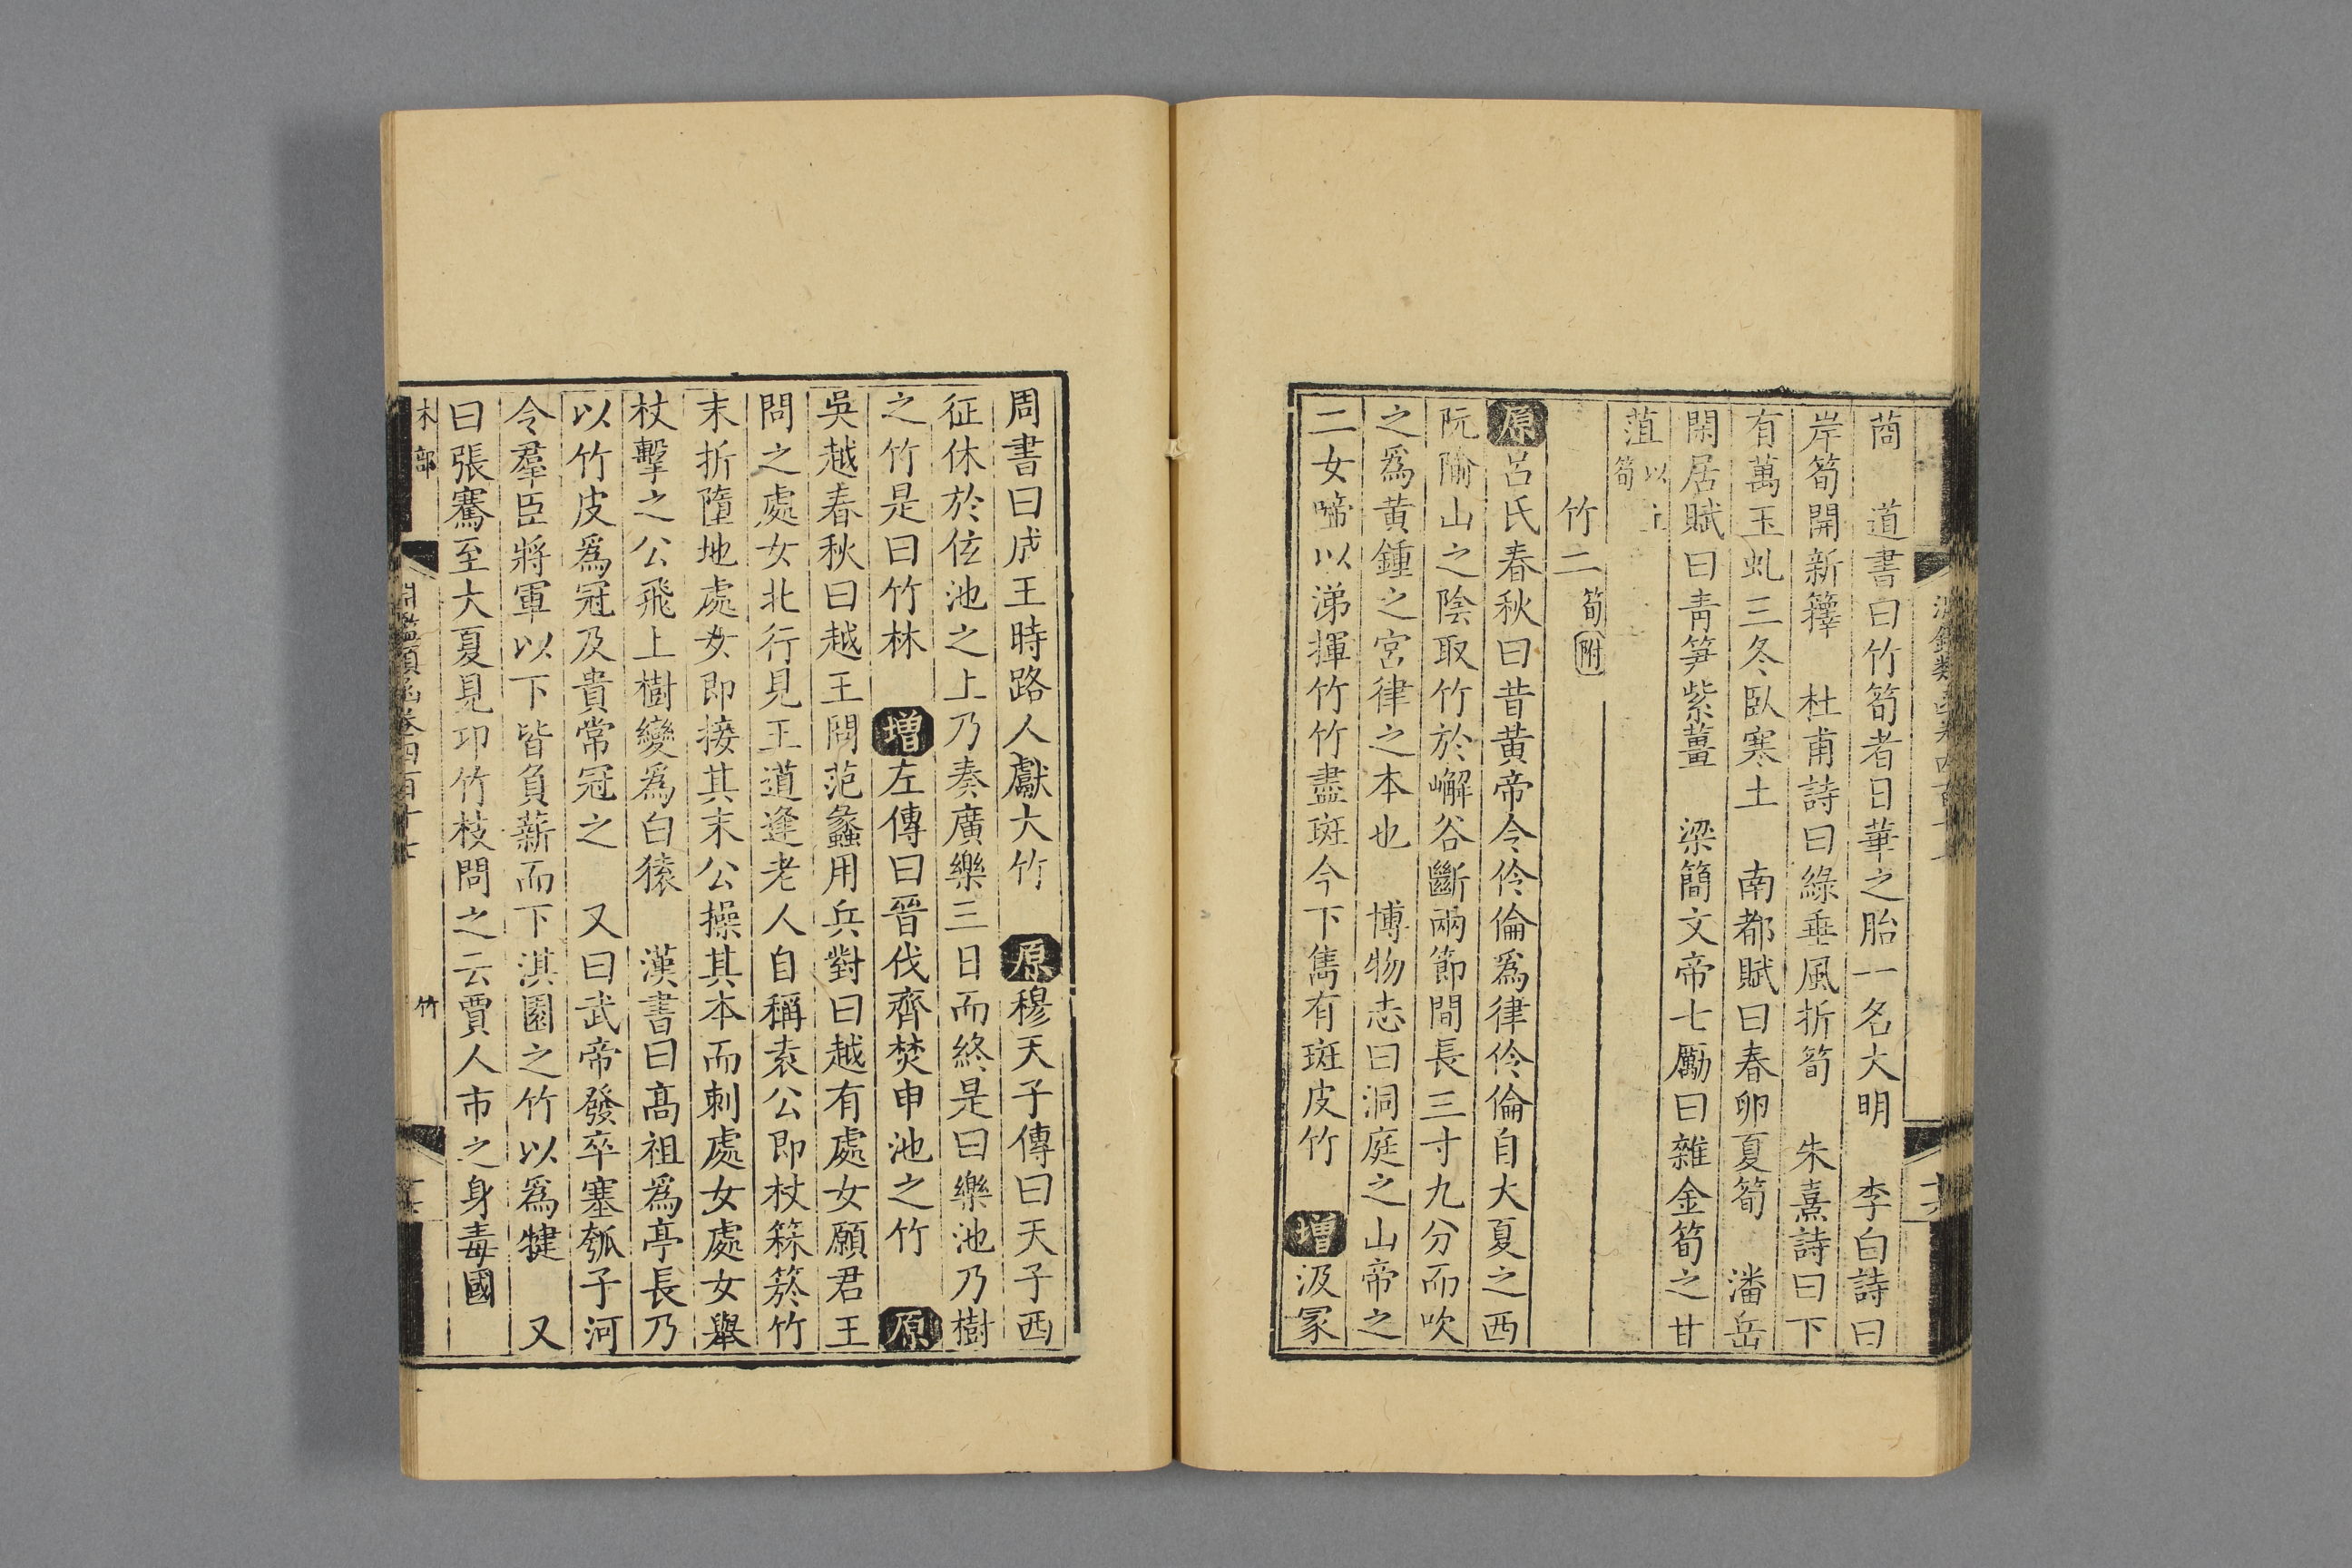 淵鑑類函卷四百十七
十六
䔥 道書曰竹筍者日華之胎一名大明 李白詩曰
岸筍開新籜 杜甫詩曰綠垂風折筍 朱熹詩曰下
有萬玉虬三冬臥寒土 南都賦曰春卵夏筍 潘岳
閑居賦曰靑笋紫薑 梁簡文帝七勵曰雜金筍之甘
菹以上筍
竹二筍附
原呂氏春秋曰昔黃帝令伶倫爲律伶倫自大夏之西
阮隃山之陰取竹於嶰谷斷兩節間長三寸九分而吹
之爲黃鍾之宮律之本也 博物志曰洞庭之山帝之
二女啼以涕揮竹竹盡斑今下雋有斑皮竹 增汲冢
周書曰成王時路人獻大竹 原穆天子傳曰天子西
征休於伭池之上乃奏廣樂三日而終是曰樂池乃樹
之竹是曰竹林 增左傳曰晉伐齊焚申池之竹 原
吳越春秋曰越王問范蠡用兵對曰越有處女願君王
問之處女北行見王道逢老人自稱袁公即杖箖箊竹
末折墮地處女即接其末公操其本而刺處女處女舉
杖擊之公飛上樹變爲白猿 漢書曰高祖爲亭長乃
以竹皮爲冠及貴常冠之 又曰武帝發卒塞瓠子河
令羣臣將軍以下皆負薪而下淇園之竹以爲楗 又
曰張騫至大夏見邛竹枝問之云賈人市之身毒國
木部
淵鑑類函卷四百十七
竹
十七